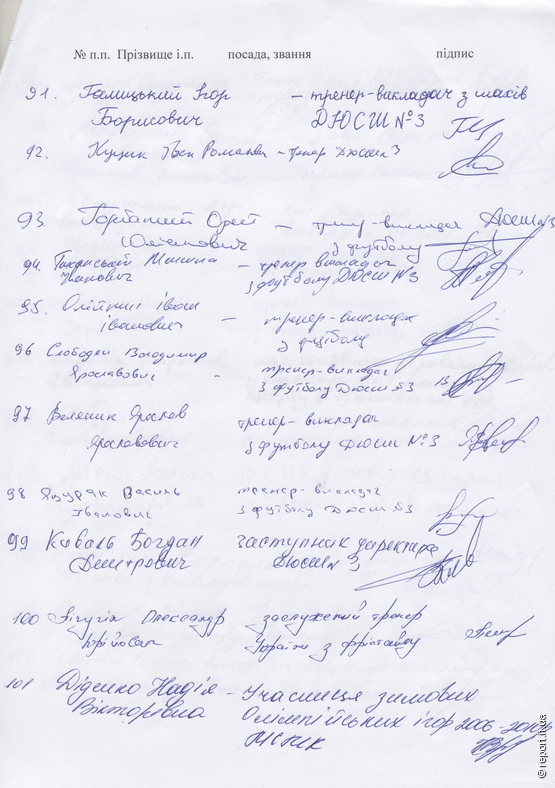 № п.п. Прізвище і.п. посада, звання підпис
91. Галицький Ігор – тренер-викладач з шахів
Борисович ДЮСШ №3
92. Роман – тренер ДЮСШ 3
93. Орест – тренер-викладач ДЮСШ №3
з футболу
94. тренер викладач
Іванович з футболу ДЮСШ №3
95. Олійник Іван – тренер-викладач
Іванович з футболу
96 Слободян Володимир тренер-викладач
Ярославович - з футболу ДЮСШ №3
97 Велешик Ярослав тренер-викладач
Ярославович з футболу ДЮСШ №3
98 Яцурак Василь тренер-викладач
Іванович з футболу ДЮСШ №3
99 Коваль Богдан заступник директора
Дмитрович ДЮСШ №3
100 Пігугін Олександр заслужений тренер
Юрійович України з фрістайлу
101 Діденко Надія – Учасниця зимових
Вікторівна Олімпійських ігор 2006-2010р
МСМК
© report.if.ua